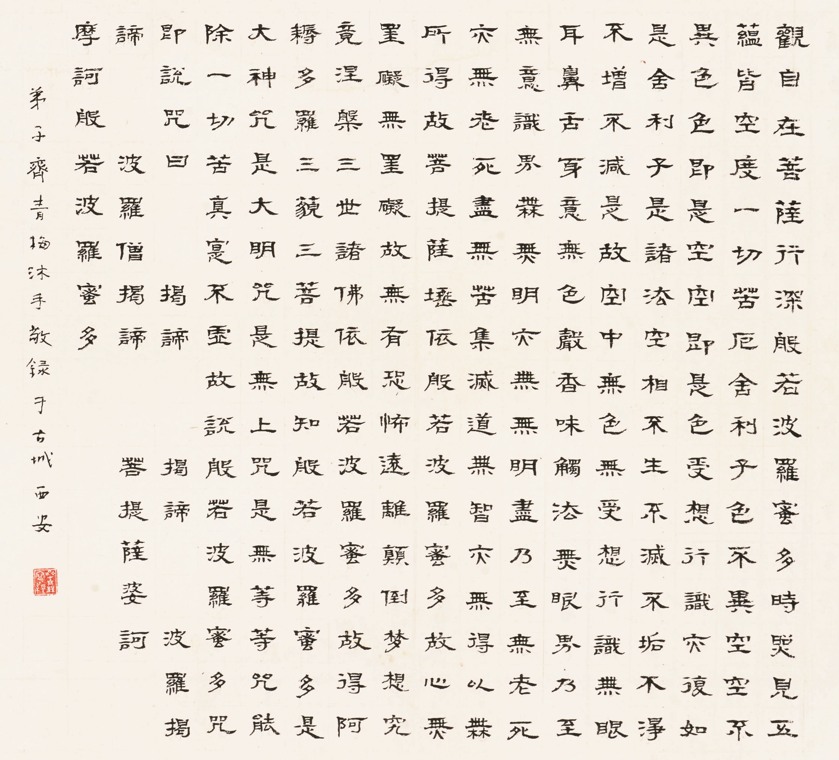 觀自在菩薩行深般若波羅蜜多時照見五
蘊皆空度一切苦厄舍利子色不異空空不
異色色即是空空即是色受想行識亦復如
是舍利子是諸法空相不生不滅不垢不淨
不增不減是故空中無色無受想行識無眼
耳鼻舌身意無色聲香味觸法無眼界乃至
無意識界無無明亦無無明盡乃至無老死
亦無老死盡無苦集滅道無智亦無得以無
所得故菩提薩埵依般若波羅蜜多故心無
罣礙無罣礙故無有恐怖遠離顛倒梦想究
竟涅槃三世諸佛依般若波羅蜜多故得阿
耨多羅三藐三菩提故知般若波羅蜜多是
大神咒是大明咒是無上咒是無等等咒能
除一切苦真實不虛故說般若波羅蜜多咒
即說咒曰 揭諦 揭諦 波羅揭
諦 波羅僧揭諦 菩提薩婆訶
摩訶般若波羅蜜多
弟子齊青梅沐手敬録于古城西安